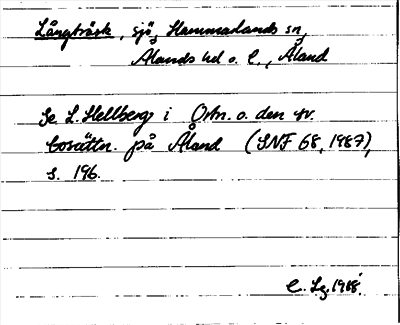 Långträsk, sjö, Hammarlands sn,
Ålands hd o. l., Åland
Se L. Hellberg i Ortn. o. den sv.
bosättn. på Åland (SNF 68, 1987),
s. 196.
C. Lg. 1988